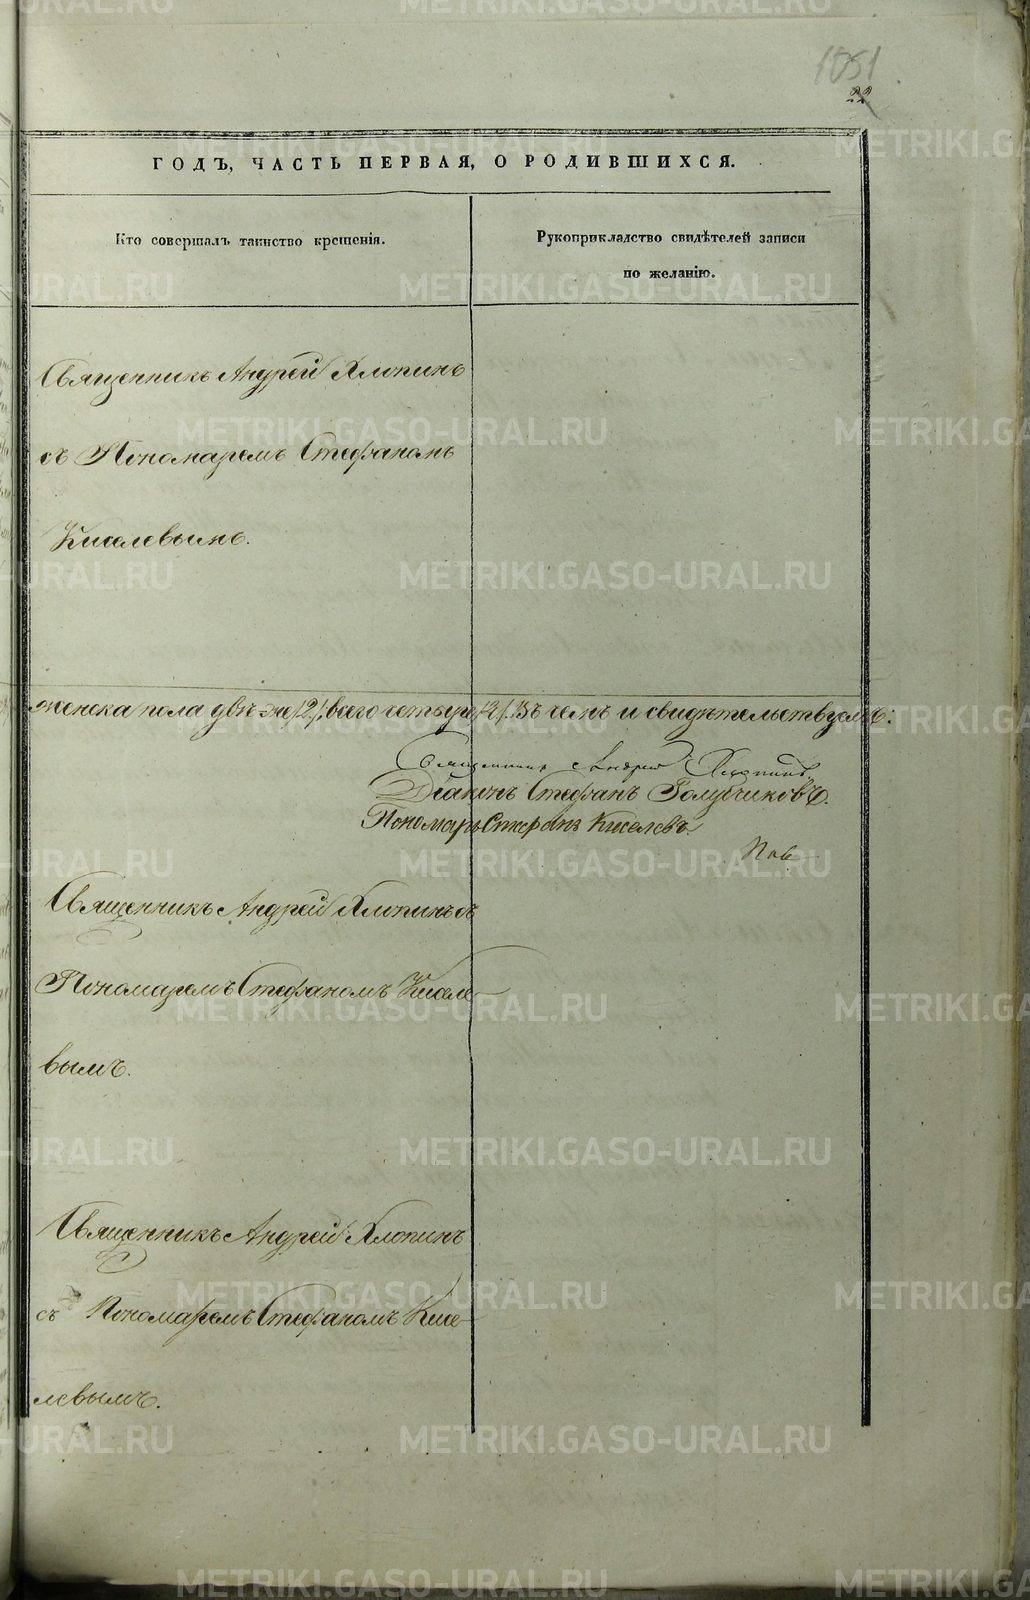 1051
22
ГОДЪ, ЧАСТЬ ПЕРВАЯ, О РОДИВШИХСЯ.
Кто совершалъ таинство крещенія.
Рукоприкладство свидѣтелей записи
по желанію.
Священникъ Андрей Хлопинъ
съ Пономаремъ Стефаномъ
Киселевымъ.
женска пола двѣ же /2/, всего четыре /4/. Въ чемъ и свидѣтельствуемъ:
Священникъ Андрей Хлопинъ.
Діаконъ Стефанъ Голубчиковъ.
Пономарь Стефанъ Киселевъ.
Священникъ Андрей Хлопинъ съ
Пономаремъ Стефаномъ Киселе-
вымъ.
Священникъ Андрей Хлопинъ
съ Пономаремъ Стефаномъ Кисе-
левымъ.
METRIKI.GASO-URAL.RU